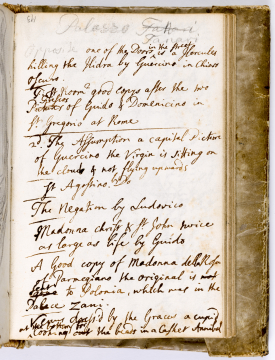 Palazzo Tanari
Opposite one of the Doors in the street is a Hercules
killing the Hidra by Guercino in chiaro
oscuro.
1st Room 2 good copys after the two
Pictures of Guido & Domenicino in
St Gregorio at Rome
2d The Assumption a capital Picture
of Guercino the Virgin is sitting on
the clouds & not flying upwards
St Agostino. Do
The Negation by Ludovico
Madonna christ & St John twice
as large as life by Guido
A Good copy of Madonna della Rosa
of Parmegiano the original is
to Polonia, which was in the
Palace Zani.
Venus dress'd by the Graces a cupid
at the bottom
looking out the beds in a Casket Annibal